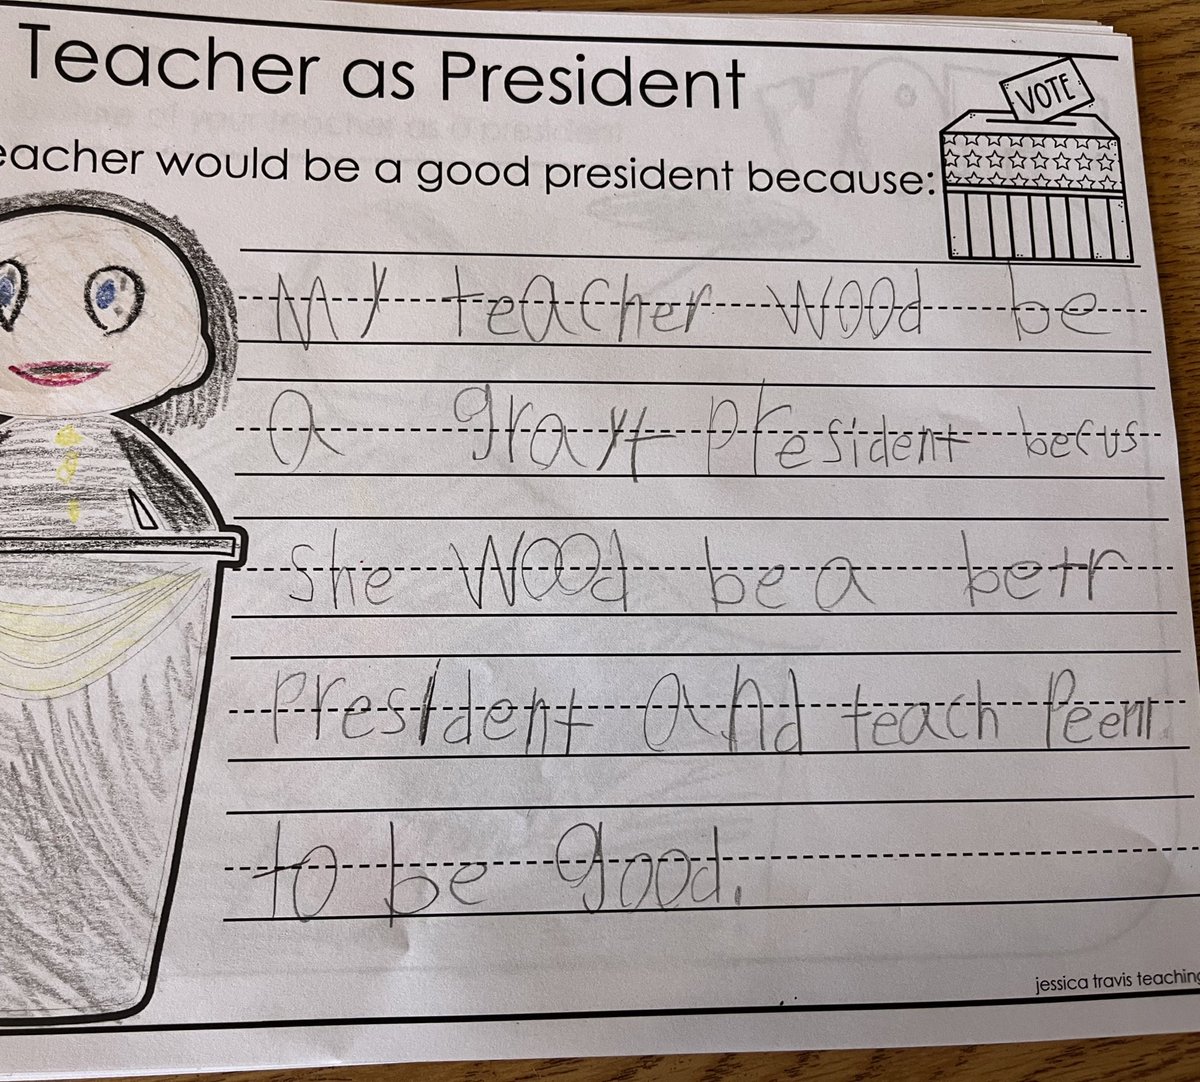 Teacher as President
VOTE
eacher would be a good president because:
My teacher wood be
a grayt president becus
she wood be a betr
president and teach
to be good.
jessica travis teaching